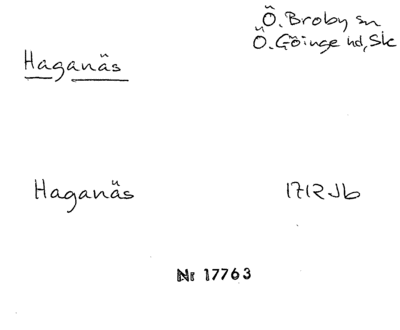 Haganäs
Ö. Broby sn
Ö. Göinge hd, Sk
Haganäs
1712 Jb
Nr 17763